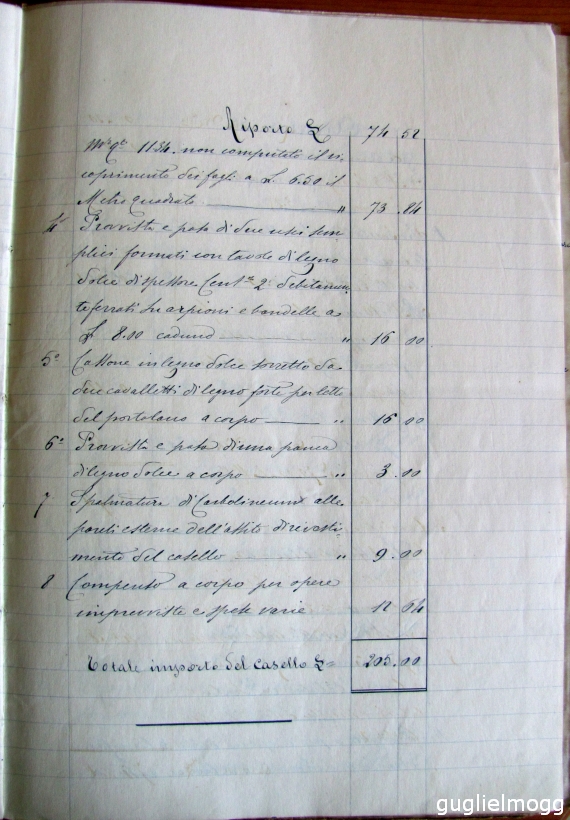 Riporto £ 74 52
Mi qi 11.34. non computato il ri,
coprimento dei fogli a £. 6.50 il
Metro quadrato " 73 . 84
4° Provvista e posa di due usci sem
plici formati con tavole di legno
dolce di spessore Cent.i 2: debitamen,
te ferrati su arpioni e bandelle a
£ 8.00 caduno " 16 00
5° Cassone in legno dolce sorretto da
due cavalletti di legno forte per letto
del portolano a corpo " 16 . 00
6° Provvista e posa di una panca
di legno dolce a corpo " 3 . 00
7 Spalmatura di Carbolineum alle
pareti esterne dell'assito di rivesti,
mento del casello " 9 . 00
8 Compenso a corpo per opere
imprevviste e spese varie 12 64
Totale importo del casello £ 205.00
guglielmogg